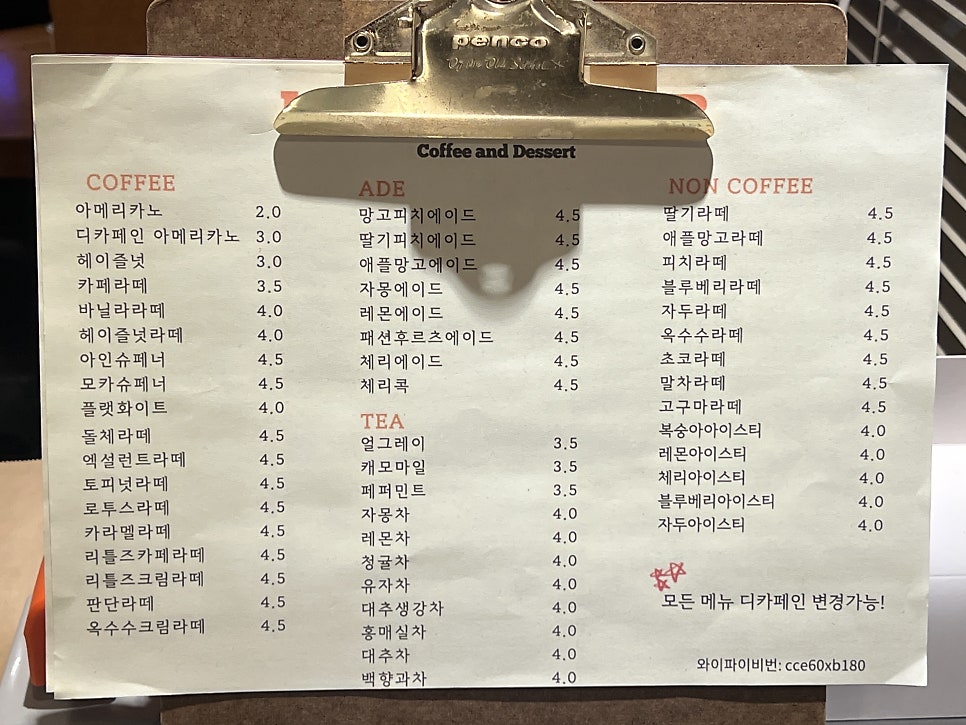 penco
Coffee and Dessert
COFFEE
아메리카노 2.0
디카페인 아메리카노 3.0
헤이즐넛 3.0
카페라떼 3.5
바닐라라떼 4.0
헤이즐넛라떼 4.0
아인슈페너 4.5
모카슈페너 4.5
플랫화이트 4.0
돌체라떼 4.5
엑설런트라떼 4.5
토피넛라떼 4.5
로투스라떼 4.5
카라멜라떼 4.5
리틀즈카페라떼 4.5
리틀즈크림라떼 4.5
판단라떼 4.5
옥수수크림라떼 4.5
ADE
망고피치에이드 4.5
딸기피치에이드 4.5
애플망고에이드 4.5
자몽에이드 4.5
레몬에이드 4.5
패션후르츠에이드 4.5
체리에이드 4.5
체리콕 4.5
TEA
얼그레이 3.5
캐모마일 3.5
페퍼민트 3.5
자몽차 4.0
레몬차 4.0
청귤차 4.0
유자차 4.0
대추생강차 4.0
홍매실차 4.0
대추차 4.0
백향과차 4.0
NON COFFEE
딸기라떼 4.5
애플망고라떼 4.5
피치라떼 4.5
블루베리라떼 4.5
자두라떼 4.5
옥수수라떼 4.5
초코라떼 4.5
말차라떼 4.5
고구마라떼 4.5
복숭아아이스티 4.0
레몬아이스티 4.0
체리아이스티 4.0
블루베리아이스티 4.0
자두아이스티 4.0
모든 메뉴 디카페인 변경가능!
와이파이비번: cce60xb180